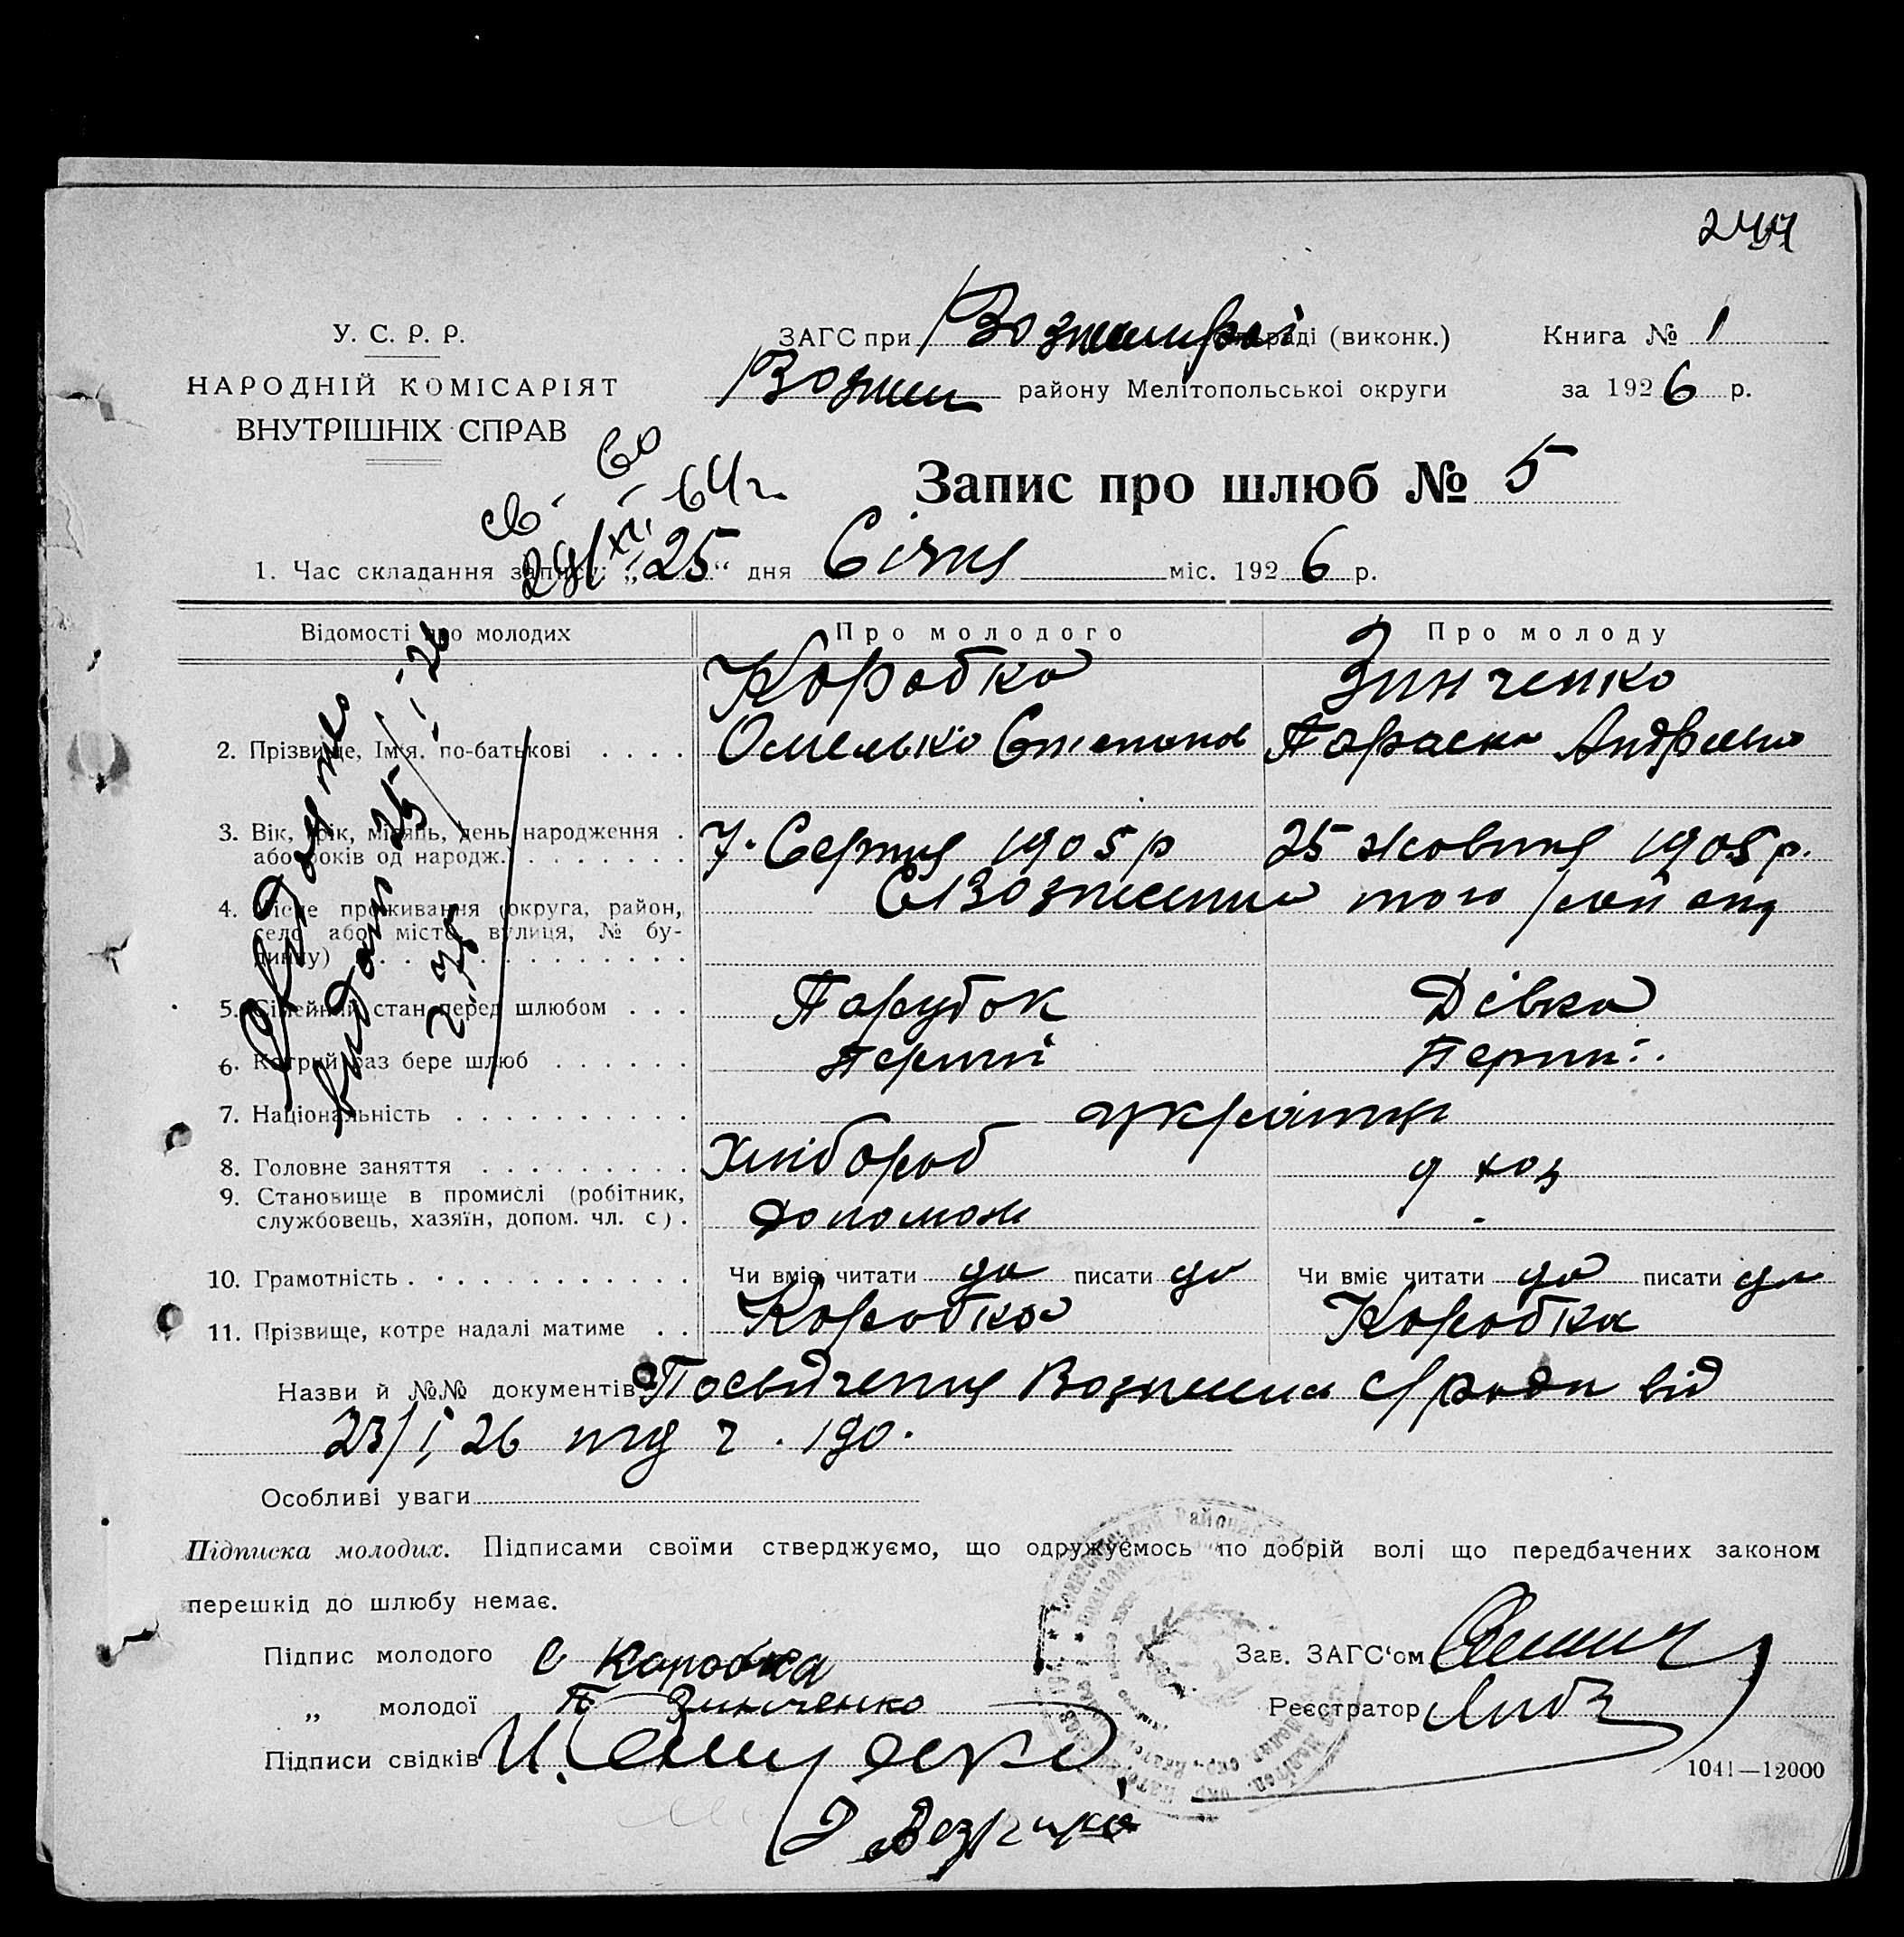 244
У. С. Р. Р.
НАРОДНІЙ КОМІСАРІЯТ
ВНУТРІШНІХ СПРАВ
ЗАГС при раді (виконк.) Книга № 1
Вознесен району Мелітопольської округи за 1926 р.
св- 60
29/XII-64 г.
Запис про шлюб № 5
1. Час складання запису: „25“ дня Січня міс. 1926 р.
Відомості про молодих Про молодого Про молоду
Коробка Зинченко
2. Прізвище, Ім'я, по-батькові . . . . Омелько Степанов Параска Андреевна
3. Вік, рік, місяць, день народження . 7. Серпня 1905 р 25 жовтня 1905 р.
або років од народж.) . . . . . . .
4. Місце проживання (округа, район, С Вознесенка того / окр
село або місто, вулиця, № бу-
динку) . . . . . . . . . . . .
5. Сімейний стан перед шлюбом . . . Парубок Дівка
6. Котрий раз бере шлюб . . . . . . Перший Перший
7. Національність . . . . . . . . . . українці
8. Головне заняття . . . . . . . . . Хлібороб д хоз
9. Становище в промислі (робітник,
службовець, хазяїн, допом. чл. с) . допомож -
10. Грамотність . . . . . . . . . . . Чи вміє читати да писати да Чи вміє читати да писати да
11. Прізвище, котре надалі матиме . . Коробка Коробка
Назви й №№ документів: Посвідчення Вознесенск с/ради від
23/I 26 під ч. 190.
Особливі уваги
Підписка молодих. Підписами своїми стверджуємо, що одружуємось по добрій волі що передбачених законом
перешкід до шлюбу немає.
Підпис молодого О Коробка Зав. ЗАГС'ом
„ молодої П Зинченко Реєстратор
Підписи свідків
1041—12000